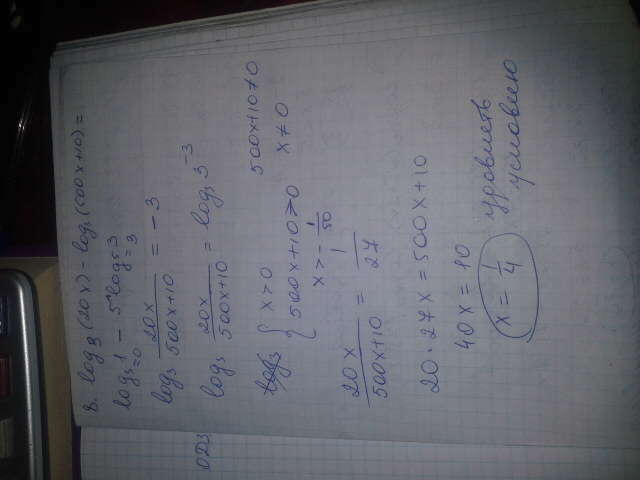 8. log₃(20x) - log₃(500x+10) =
log₅1 - 5^log₅3
=0 =3
log₃ 20x/(500x+10) = -3
log₃ 20x/(500x+10) = log₃ 3⁻³
ОДЗ { x>0
500x+10>0 500x+10≠0
x>-1/50 x≠0
20x/(500x+10) = 1/27
20·27x = 500x+10
40x = 10
x = 1/4
условию